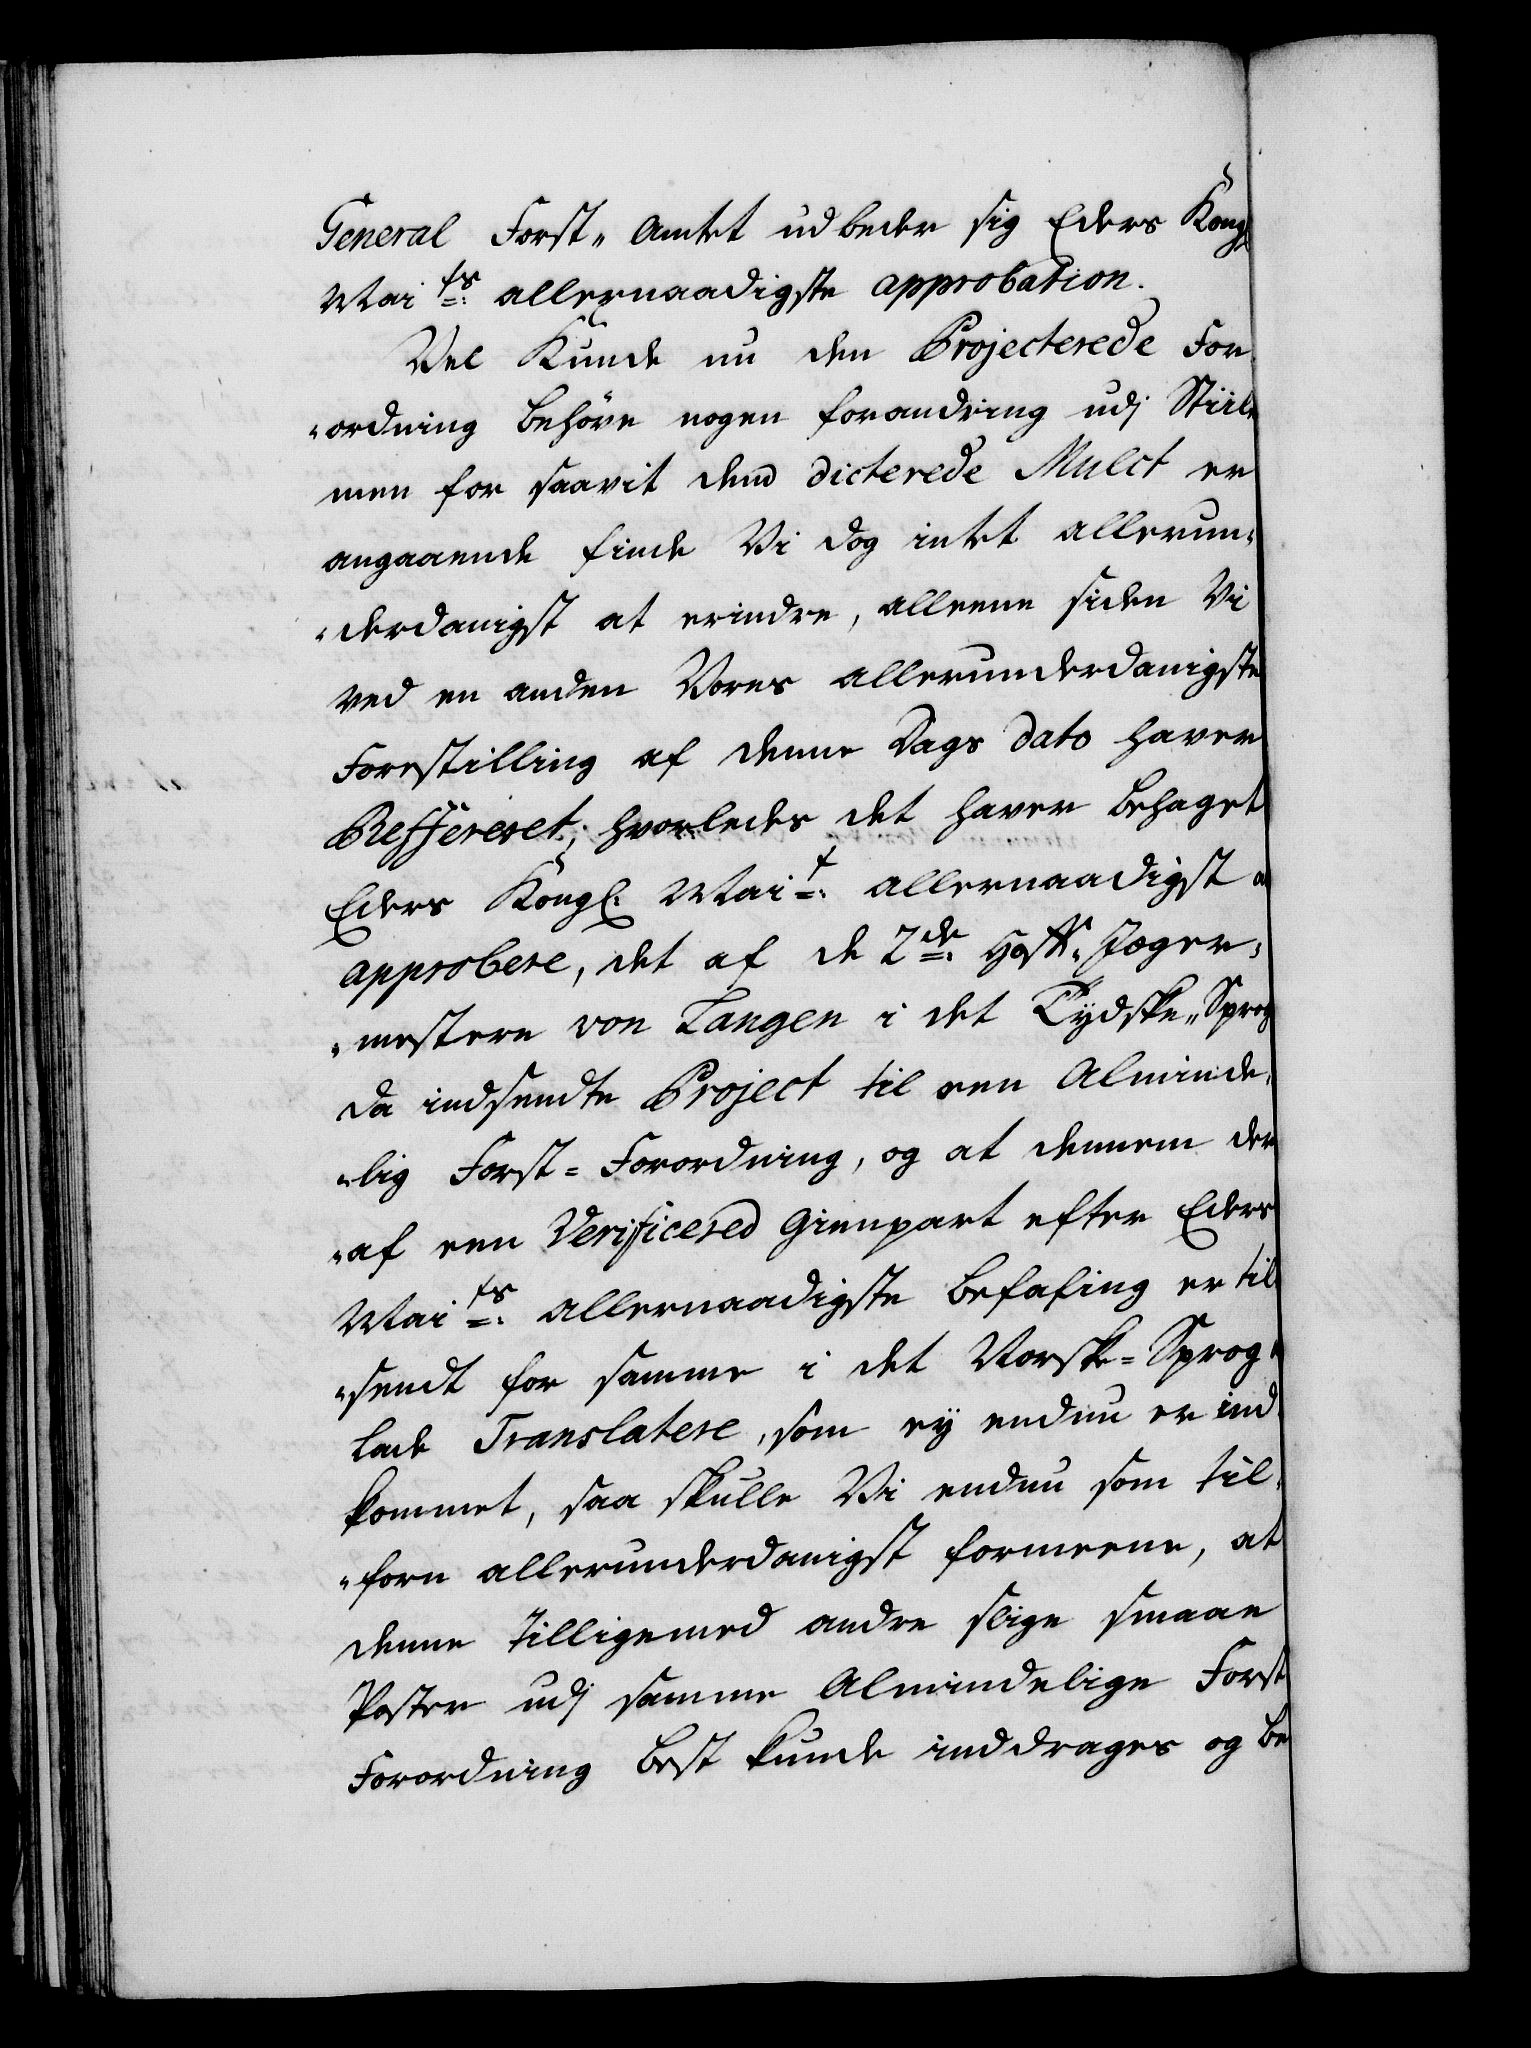 General Forst„ Amtet udbeder sig Eders Kongl
Mai ts: allernaadigste approbation.
Vel Kunde nu den Projecterede For
„ordning behöve nogen forandring udj Stiile
men for saavit dend dicterede Mulct er
angaaende finde Vi dog intet allerun„
„derdanigst at erindre, alleene siden Vi
ved en anden Vores allerunderdanigste
Forestilling af denne Dags Dato haver
Reffereret, hvorledes det haver behaget
Eders Kongl: Mai t: allernaadigst a
approbere, det af de 2de: Hoff„ Jæger„
„mestere von Langen i det Tydske„ Sprog
da indsendte Project til een Alminde„
„lig Forst= Forordning, og at dennem der
„af een Verificered Gienpart efter Eders
Mai ts: allernaadigste Befaling er til
„sendt for samme i det Norske= Sprog
lade Translatere, som ey endnu er ind„
kommet, saa skulle Vi endnu som til„
„forn allerunderdanigst formeene, at
denne tilligemed andre slige smaae
Poster udj samme Almindelige Forst
Forordning best kunde inddrages og be